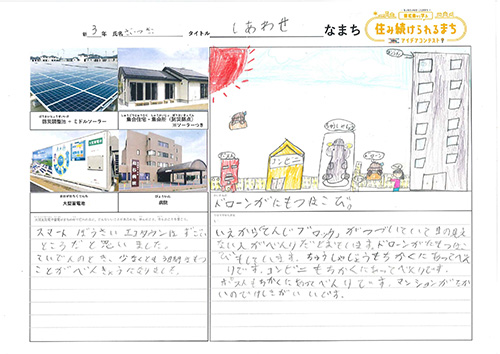 3年 氏名
タイトル しあわせ なまち
住み続けられるまち
アイデアコンテスト
防災調整池 + ミドルソーラー
集合住宅・集会所(防災拠点)
大型蓄電池
病院
コンビニ
ドローンがにもつはこび。
スマートぼうさいエコタウンはすごい
ところだと思いました。
ていでんのとき、少なくとも3日間もつ
ことがべんきょうになりました。
いえからてんじブロックがつづいていて目の見え
ない人がべんりだとおもいます。ドローンがにもつはこ
びもしています。ちゅうしゃじょうもちかくにあってべん
りです。コンビニもちかくにあってべんりです。
ポストもちかくにあってべんりです。マンションがちか
いのでけしきがいいです。